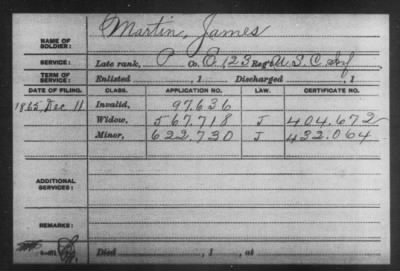 NAME OF SOLDIER: Martin, James
SERVICE: Late rank, P Co. E, 123 Reg't U.S.C. Inf
TERM OF SERVICE: Enlisted , 1 Discharged , 1
DATE OF FILING. CLASS. APPLICATION NO. LAW. CERTIFICATE NO.
1865, Dec 11 Invalid, 97.636
Widow, 567.718 J 404.672
Minor, 622.730 J 432.064
ADDITIONAL SERVICES:
REMARKS:
Died , 1 , at